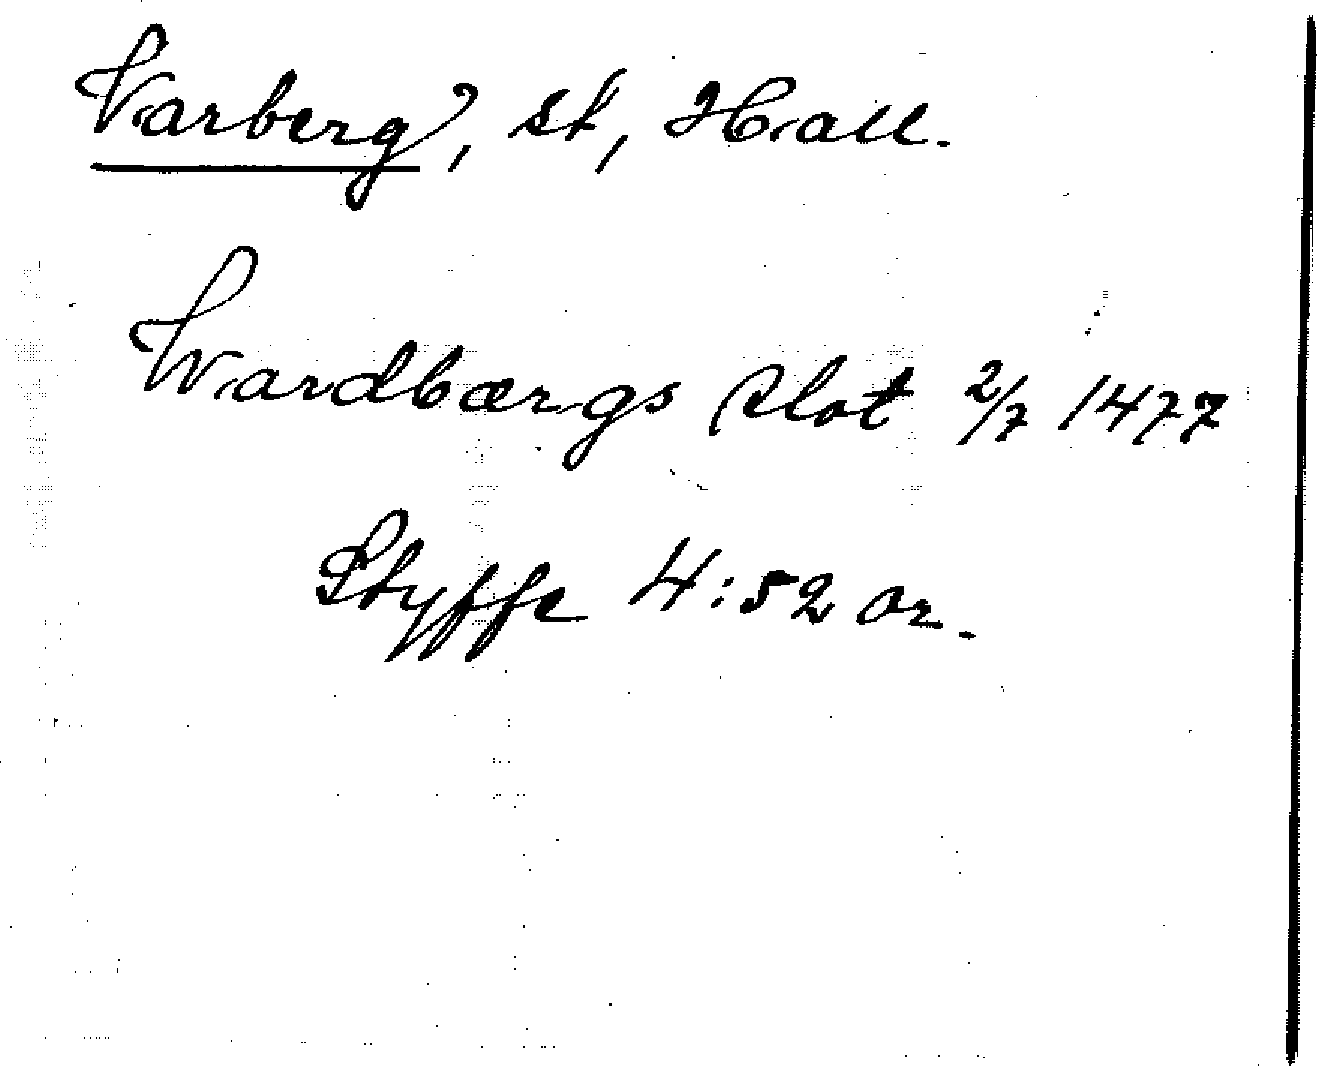 Varberg, st, Hall.
Wardbærgs slot 2/7 1477
Styffe 4:52 or.